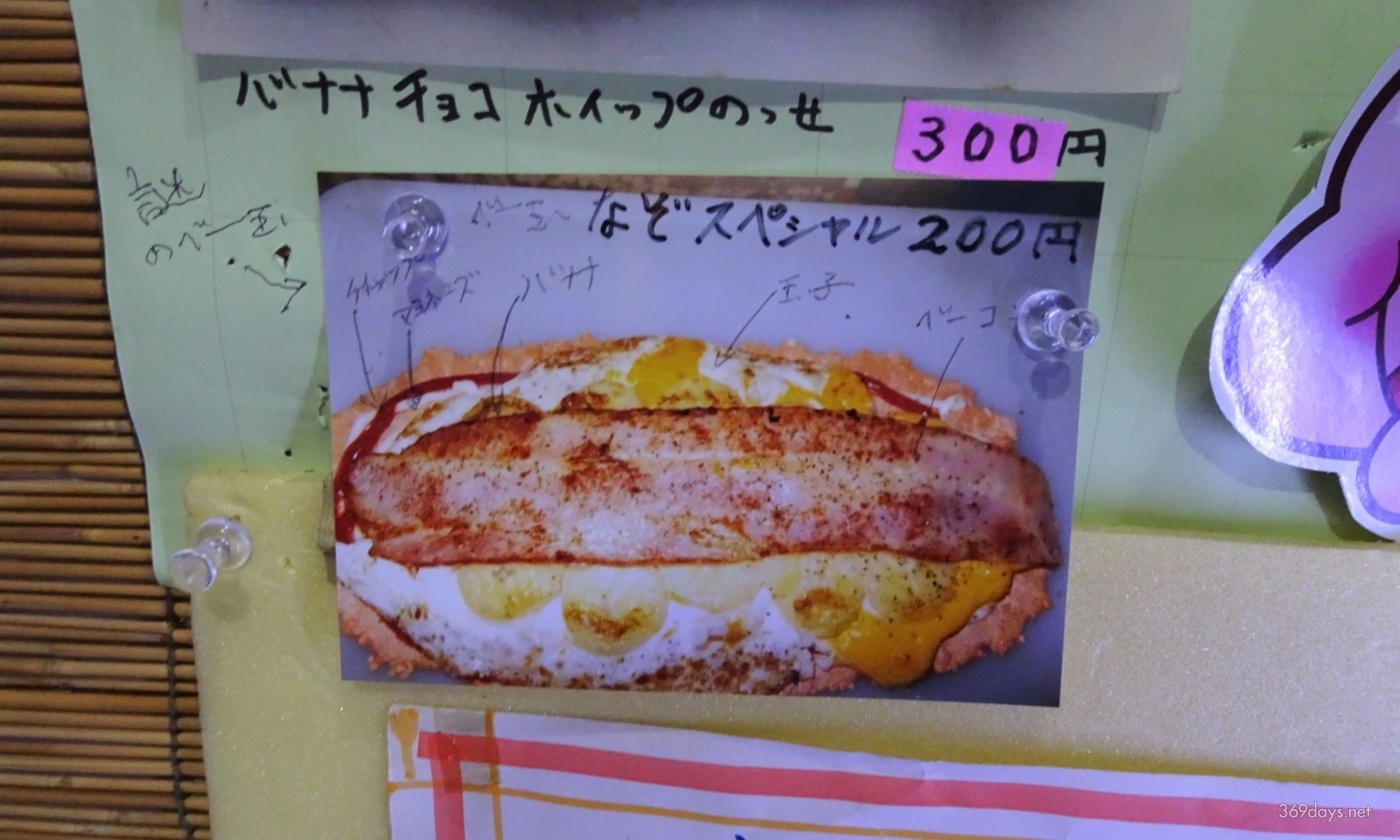 バナナチョコホイップのっせ
300円
なぞスペシャル200円
ケチャップ
マヨネーズ
バナナ
玉子
ベーコ
369days.net